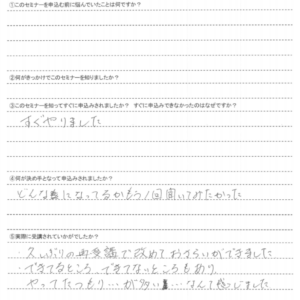 ①このセミナーを申込む前に悩んでいたことは何ですか？
②何がきっかけでこのセミナーを知りましたか？
③このセミナーを知ってすぐに申込みされましたか？ すぐに申込みできなかったのはなぜですか？
すぐやりました
④何が決め手となって申込みされましたか？
どんな風になってるかもう1回聞いてみたかった
⑤実際に受講されていかがでしたか？
久しぶりの再受講で改めておさらいができました
できてるところ、できてないところもあり
やってたつもり…が多い…なんて感じました